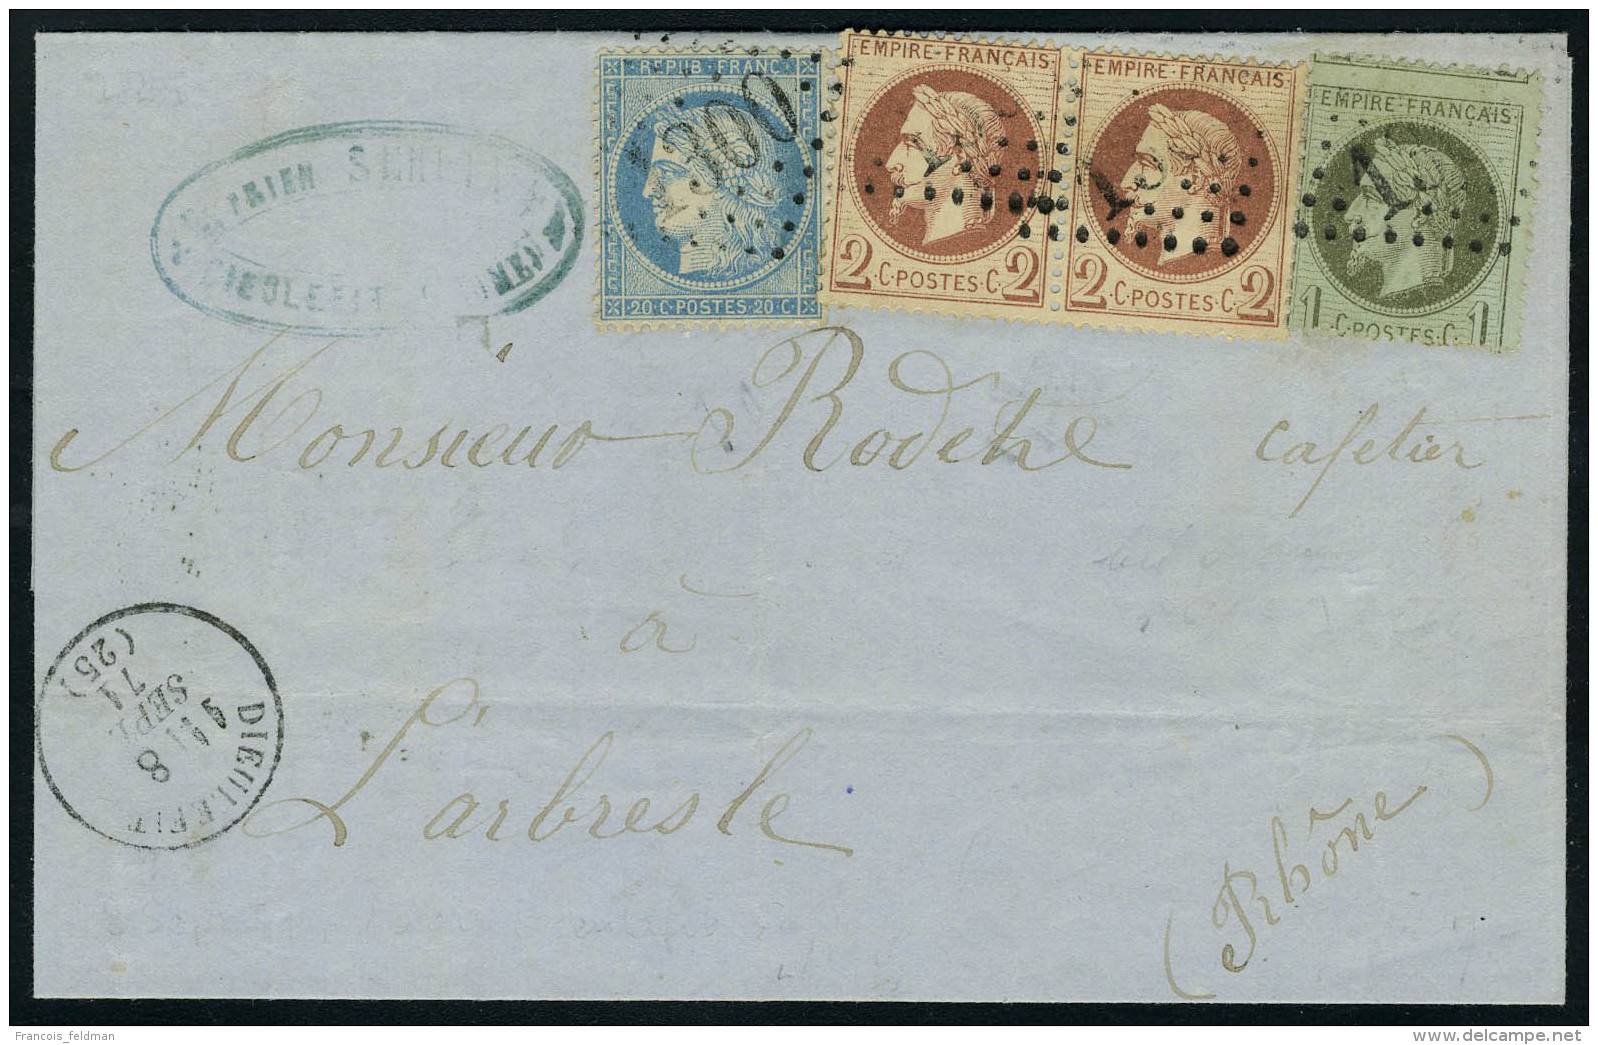 REPUB. FRANC.
20 · C · POSTES · 20 · C
EMPIRE · FRANÇAIS
2 · C · POSTES · C · 2
EMPIRE · FRANÇAIS
2 · C · POSTES · C · 2
EMPIRE · FRANÇAIS
1 · C · POSTES · C · 1
1300
DIEULEFIT
Monsieur Rodete cafetier
à
L'arbresle
(Rhône)
DIEULEFIT
8
SEPT.
71
(25)
Francois_feldman
delcampe.net